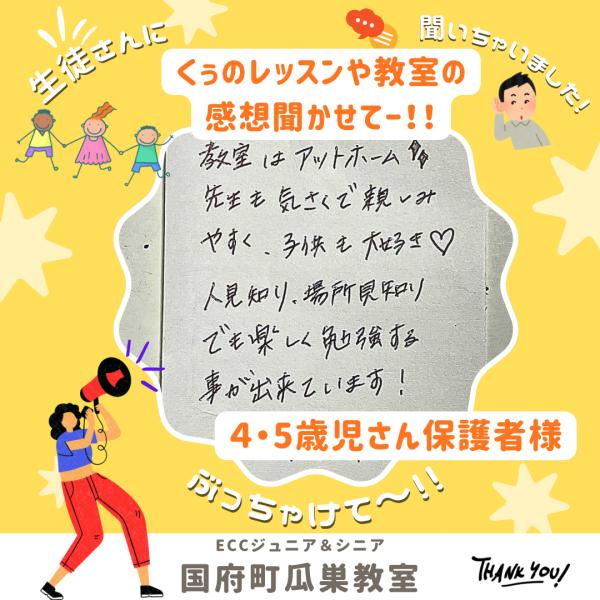 生徒さんに
聞いちゃいました!
くぅのレッスンや教室の
感想聞かせてー!!
教室はアットホーム
先生も気さくで親しみ
やすく、子供も大好き♡
人見知り、場所見知り
でも楽しく勉強する
事が出来ています!
4・5歳児さん保護者様
ぶっちゃけて〜!!
ECCジュニア&シニア
国府町瓜巣教室
THANK YOU!